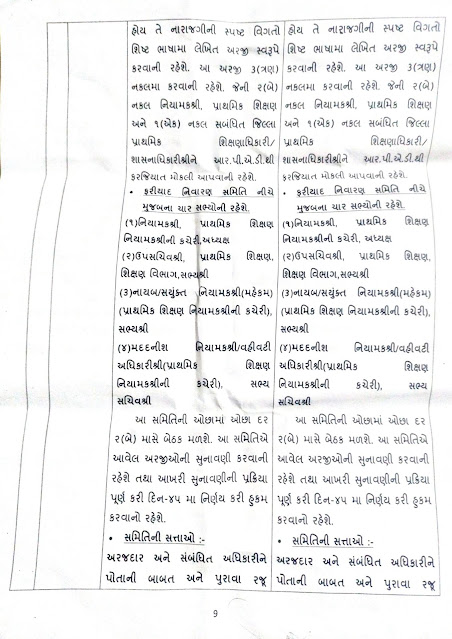 હોય તે નારાજગીની સ્પષ્ટ વિગતો
શિષ્ટ ભાષામા લેખિત અરજી સ્વરૂપે
કરવાની રહેશે. આ અરજી ૩(ત્રણ)
નકલમા કરવાની રહેશે. જેની ર(બે)
નકલ નિયામકશ્રી, પ્રાથમિક શિક્ષણ
અને ૧(એક) નકલ સબંધિત જિલ્લા
પ્રાથમિક શિક્ષણાધિકારી/
શાસનાધિકારીશ્રીને આર.પી.એ.ડી.થી
ફરજિયાત મોકલી આપવાની રહેશે.
• ફરીયાદ નિવારણ સમિતિ નીચે
મુજબના ચાર સભ્યોની રહેશે.
(૧)નિયામકશ્રી, પ્રાથમિક શિક્ષણ
નિયામકશ્રીની કચેરી,અધ્યક્ષ
(ર)ઉપસચિવશ્રી, પ્રાથમિક શિક્ષણ,
શિક્ષણ વિભાગ,સભ્યશ્રી
(૩)નાયબ/સયુંક્ત નિયામકશ્રી(મહેકમ)
(પ્રાથમિક શિક્ષણ નિયામકશ્રીની કચેરી),
સભ્યશ્રી
(૪)મદદનીશ નિયામકશ્રી/વહીવટી
અધિકારીશ્રી(પ્રાથમિક શિક્ષણ
નિયામકશ્રીની કચેરી), સભ્ય
સચિવશ્રી
આ સમિતિની ઓછામાં ઓછા દર
ર(બે) માસે બેઠક મળશે. આ સમિતિએ
આવેલ અરજીઓની સુનાવણી કરવાની
રહેશે તથા આખરી સુનાવણીની પ્રક્રિયા
પૂર્ણ કરી દિન-૪૫ મા નિર્ણય કરી હુકમ
કરવાનો રહેશે.
• સમિતિની સત્તાઓ :-
અરજદાર અને સંબંધિત અધિકારીને
પોતાની બાબત અને પુરાવા રજૂ
હોય તે નારાજગીની સ્પષ્ટ વિગતો
શિષ્ટ ભાષામા લેખિત અરજી સ્વરૂપે
કરવાની રહેશે. આ અરજી ૩(ત્રણ)
નકલમા કરવાની રહેશે. જેની ર(બે)
નકલ નિયામકશ્રી, પ્રાથમિક શિક્ષણ
અને ૧(એક) નકલ સબંધિત જિલ્લા
પ્રાથમિક શિક્ષણાધિકારી/
શાસનાધિકારીશ્રીને આર.પી.એ.ડી.થી
ફરજિયાત મોકલી આપવાની રહેશે.
• ફરીયાદ નિવારણ સમિતિ નીચે
મુજબના ચાર સભ્યોની રહેશે.
(૧)નિયામકશ્રી, પ્રાથમિક શિક્ષણ
નિયામકશ્રીની કચેરી, અધ્યક્ષ
(ર)ઉપસચિવશ્રી, પ્રાથમિક શિક્ષણ,
શિક્ષણ વિભાગ,સભ્યશ્રી
(૩)નાયબ/સયુંક્ત નિયામકશ્રી(મહેકમ)
(પ્રાથમિક શિક્ષણ નિયામકશ્રીની કચેરી),
સભ્યશ્રી
(૪)મદદનીશ નિયામકશ્રી/વહીવટી
અધિકારીશ્રી(પ્રાથમિક શિક્ષણ
નિયામકશ્રીની કચેરી), સભ્ય
સચિવશ્રી
આ સમિતિની ઓછામાં ઓછા દર
ર(બે) માસે બેઠક મળશે. આ સમિતિએ
આવેલ અરજીઓની સુનાવણી કરવાની
રહેશે તથા આખરી સુનાવણીની પ્રક્રિયા
પૂર્ણ કરી દિન-૪૫ મા નિર્ણય કરી હુકમ
કરવાનો રહેશે.
• સમિતિની સત્તાઓ :-
અરજદાર અને સંબંધિત અધિકારીને
પોતાની બાબત અને પુરાવા રજૂ
9